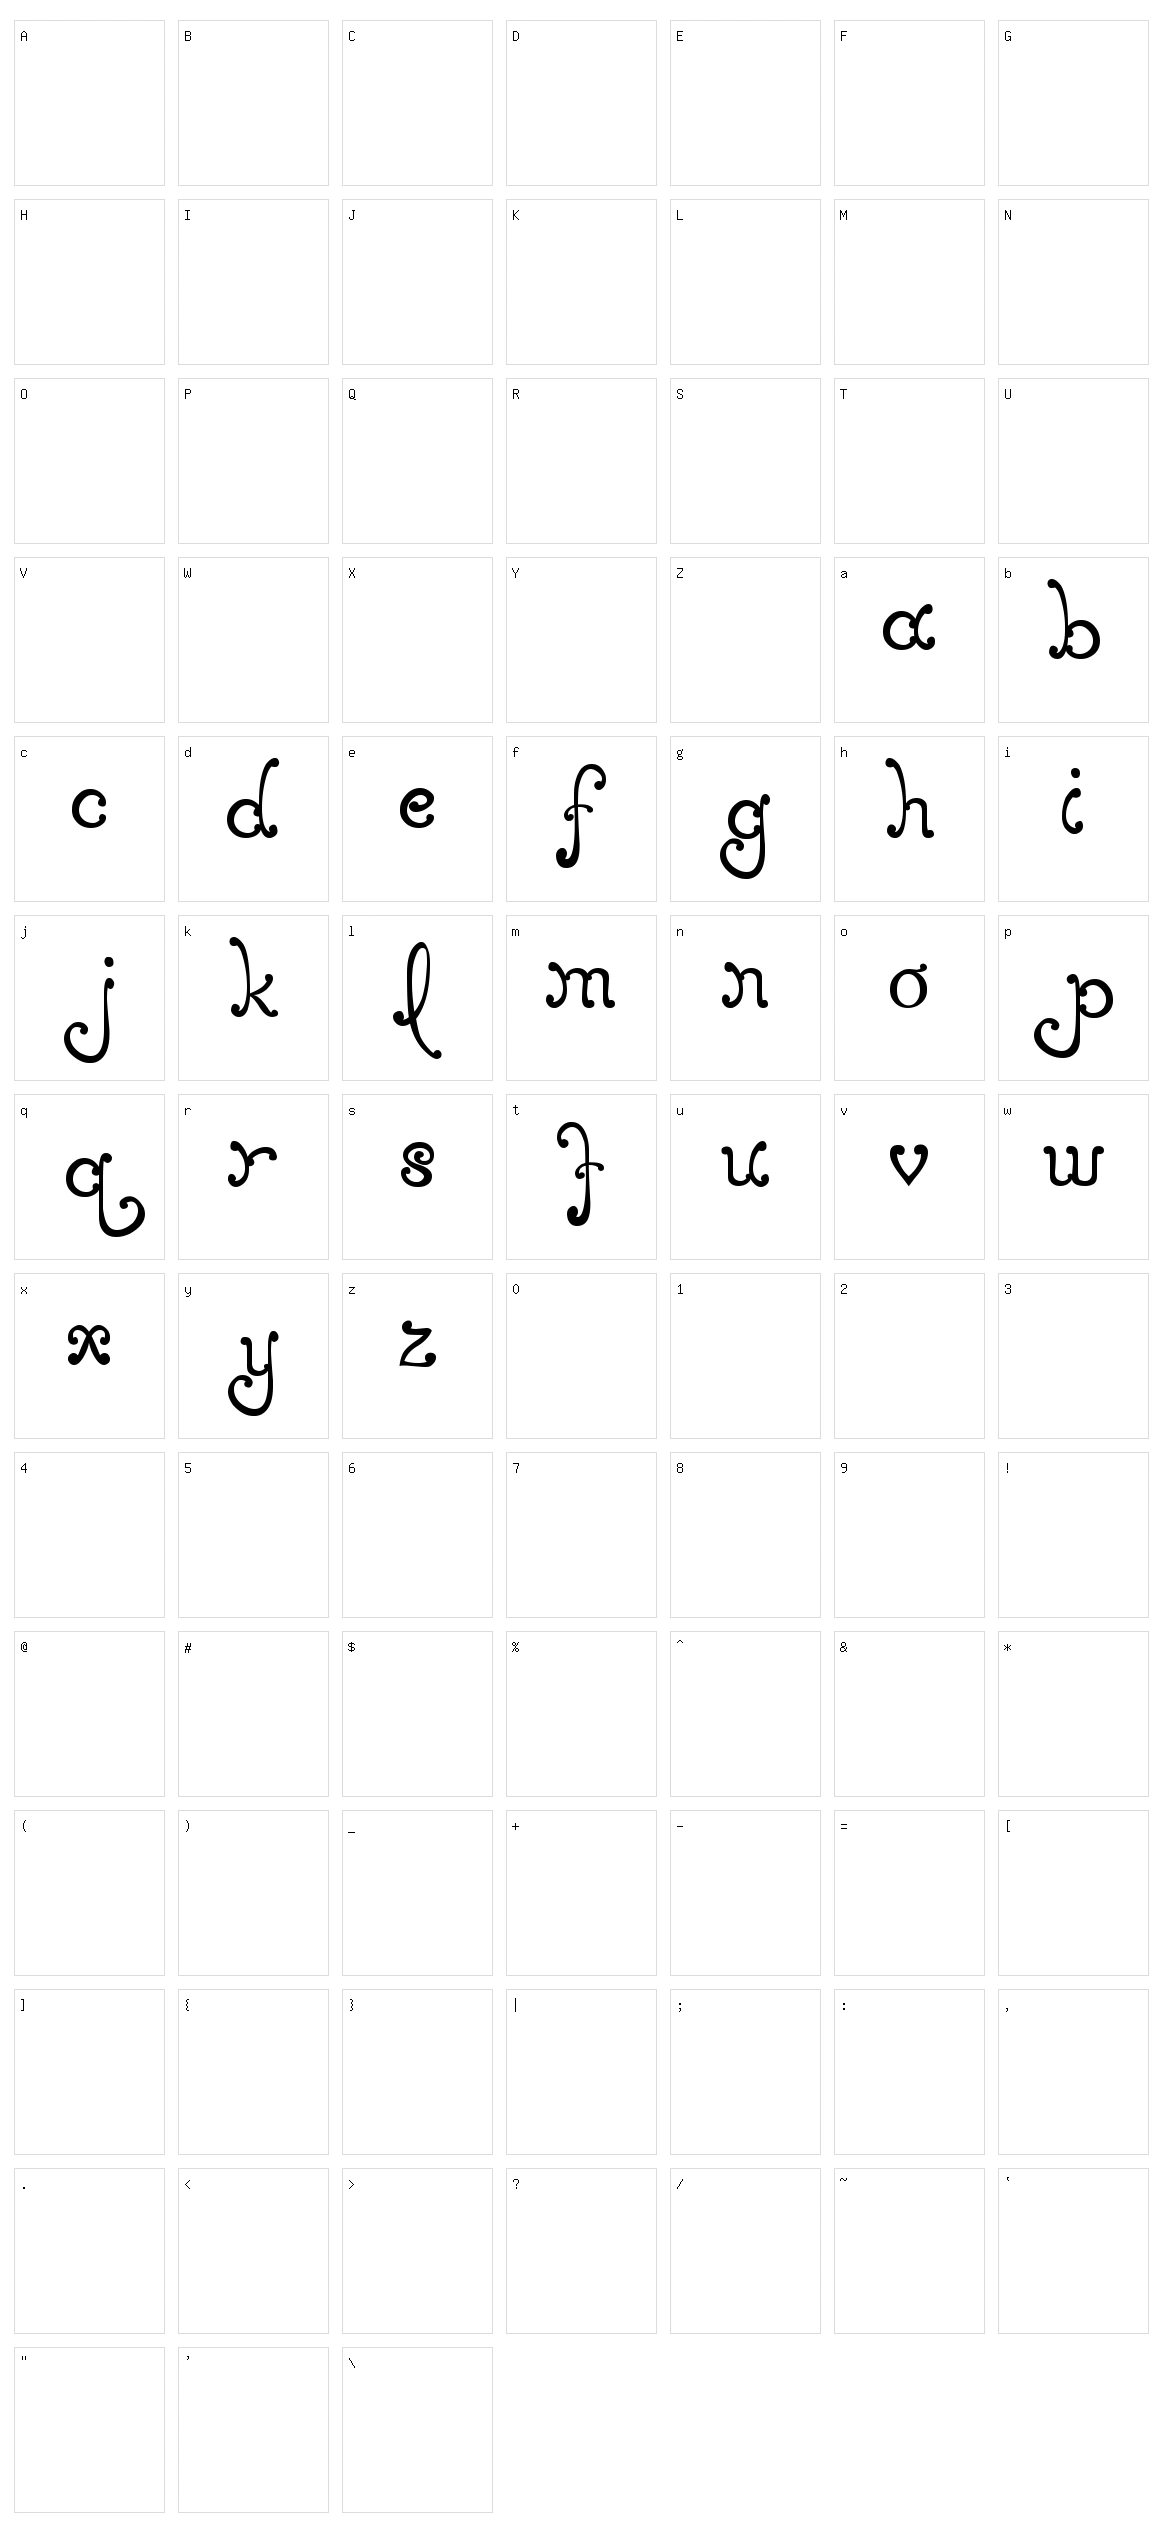 A B C D E F G
H I J K L M N
O P Q R S T U
V W X Y Z a b
a b
c d e f g h i
c d e f g h i
j k l m n o p
j k l m n o p
q r s t u v w
q r s t u v w
x y z 0 1 2 3
x y z
4 5 6 7 8 9 !
@ # $ % ^ & *
( ) _ + - = [
] { } | ; : ,
. < > ? / ~ ‛
" ’ \